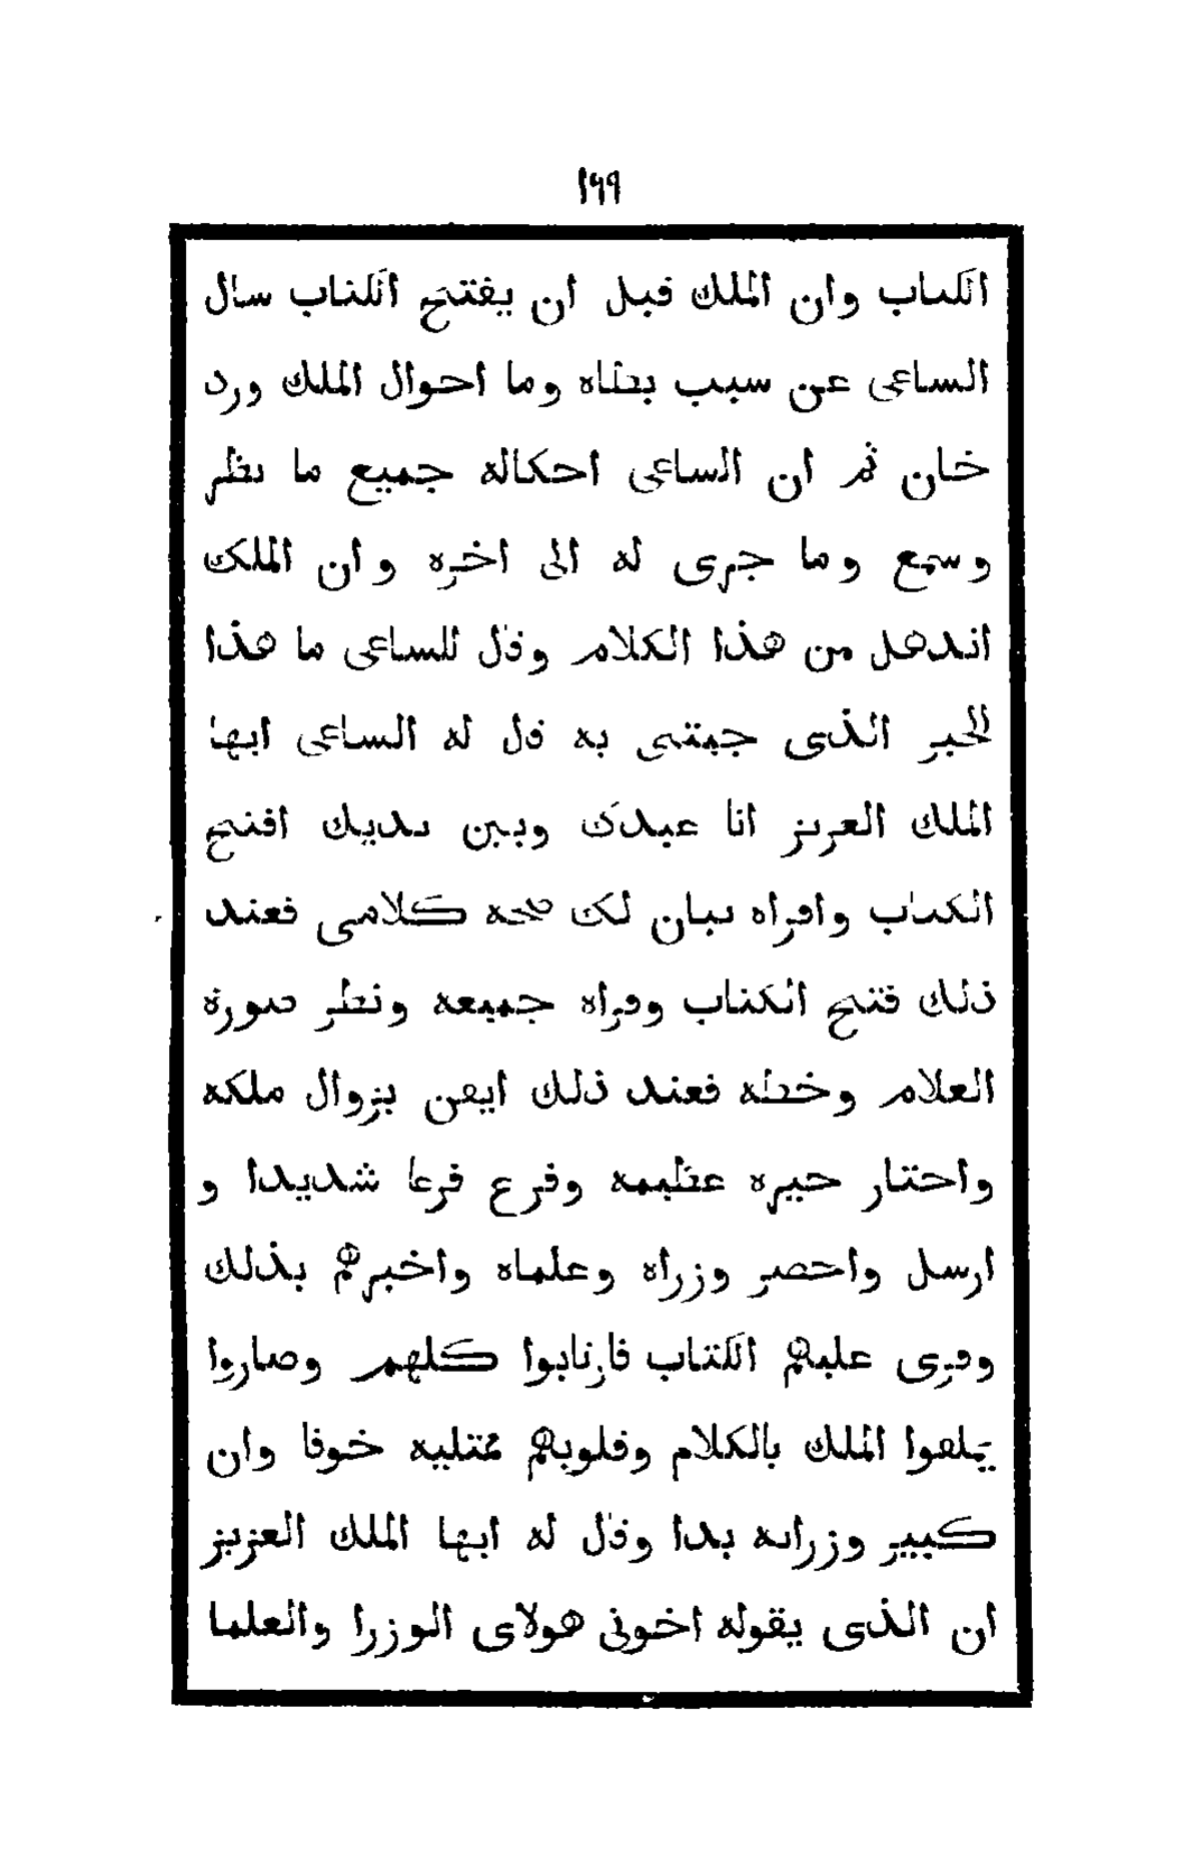 ١٦٩
الكتاب وان الملك قبل ان يفتح الكتاب سال
الساعى عن سبب بطاه وما احوال الملك ورد
خان ثم ان الساعى احكاله جميع ما نظر
وسمع وما جرى له الى اخره وان الملك
اندهل من هذا الكلام وقال للساعى ما هذا
الخبر الذى جيتنى به قال له الساعى ايها
الملك العزيز انا عبدك وبين يديك افتح
الكتاب واقراه تبان لك صحة كلامى فعند
ذلك فتح الكتاب وقراه جميعه ونظر صورة
الغلام وخطه فعند ذلك ايقن بزوال ملكه
واحتار حيره عظيمه وفزع فزعا شديدا و
ارسل واحضر وزراه وعلماه واخبرهم بذلك
وقرى عليهم الكتاب فارتابوا كلهم وصاروا
يملقوا الملك بالكلام وقلوبهم ممتليه خوفا وان
كبير وزرايه بدا وقال له ايها الملك العزيز
ان الذى يقوله اخوتى هولاى الوزرا والعلما